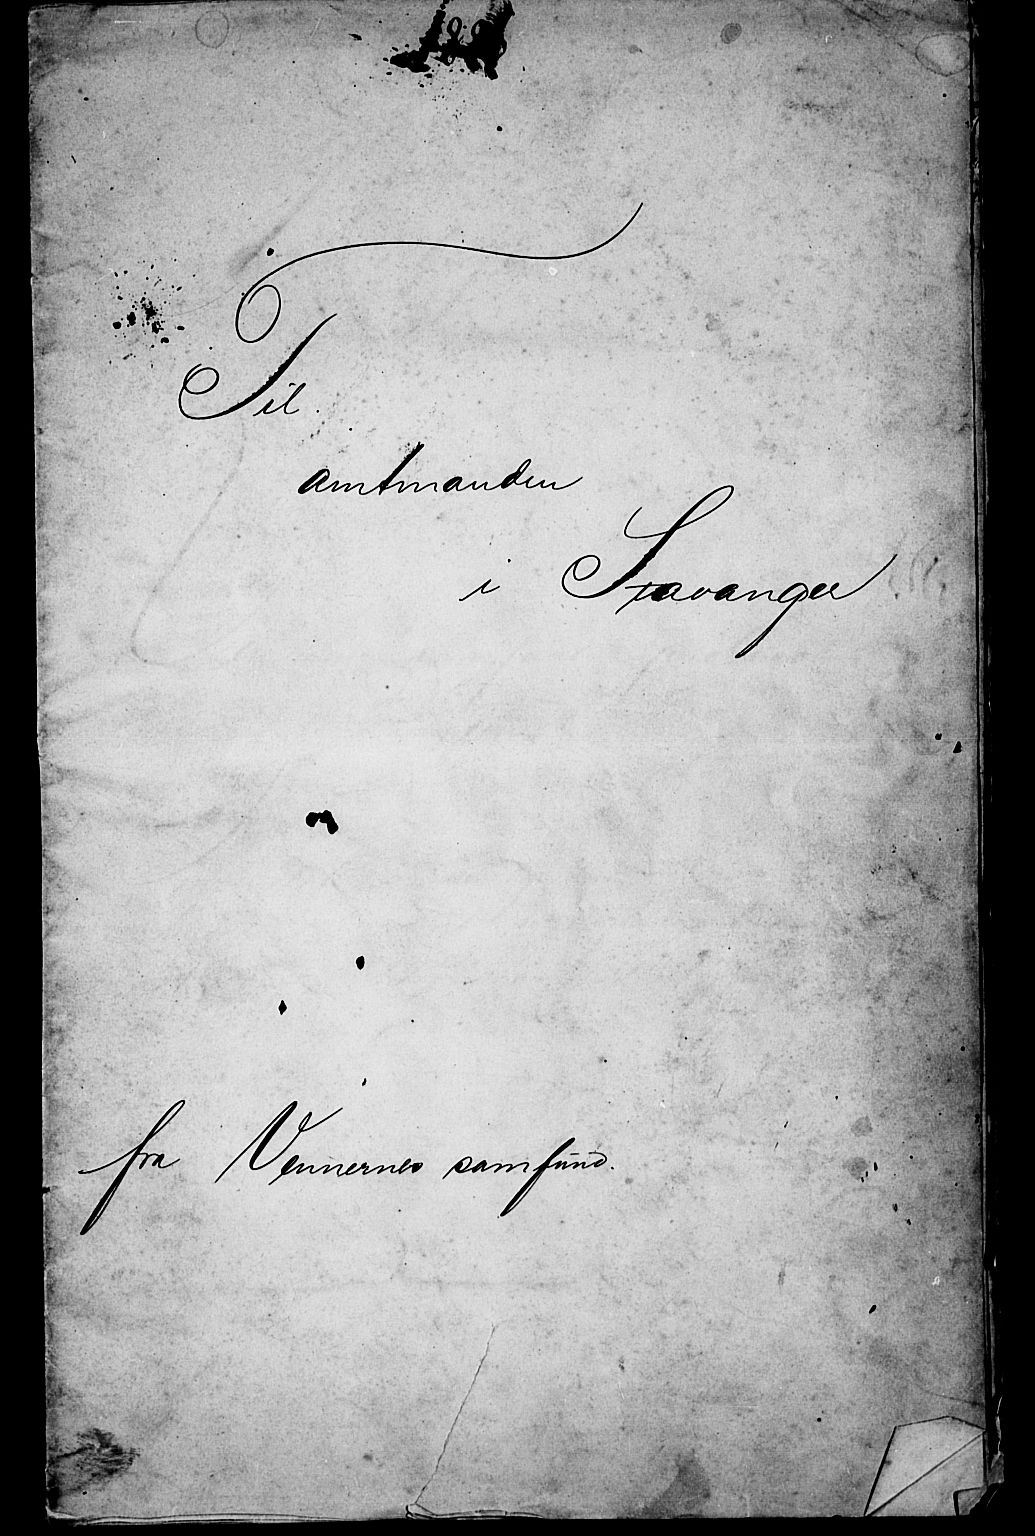 Til
amtmanden
i Stavanger
fra Vennernes samfund.